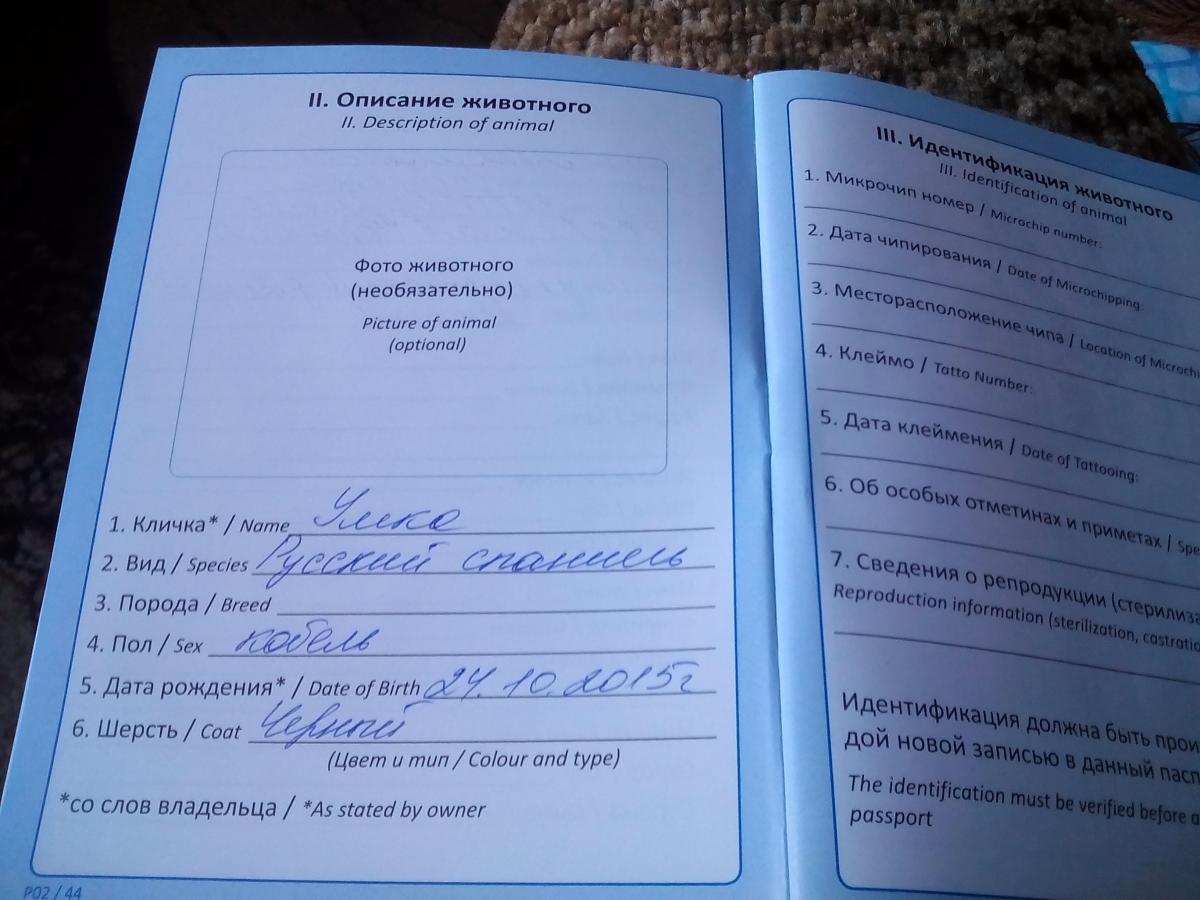 II. Описание животного
II. Description of animal
Фото животного
(необязательно)
Picture of animal
(optional)
1. Кличка* / Name Умка
2. Вид / Species Русский спаниель
3. Порода / Breed
4. Пол / Sex кобель
5. Дата рождения* / Date of Birth 24.10.2015г
6. Шерсть / Coat Черный
(Цвет и тип / Colour and type)
*со слов владельца / *As stated by owner
P02 / 44
III. Идентификация животного
III. Identification of animal
1. Микрочип номер / Microchip number:
2. Дата чипирования / Date of Microchipping:
3. Месторасположение чипа / Location of Microchi
4. Клеймо / Tatto Number:
5. Дата клеймения / Date of Tattooing:
6. Об особых отметинах и приметах / Spe
7. Сведения о репродукции (стерилиза
Reproduction information (sterilization, castratio
Идентификация должна быть прои
дой новой записью в данный пасп
The identification must be verified before a
passport